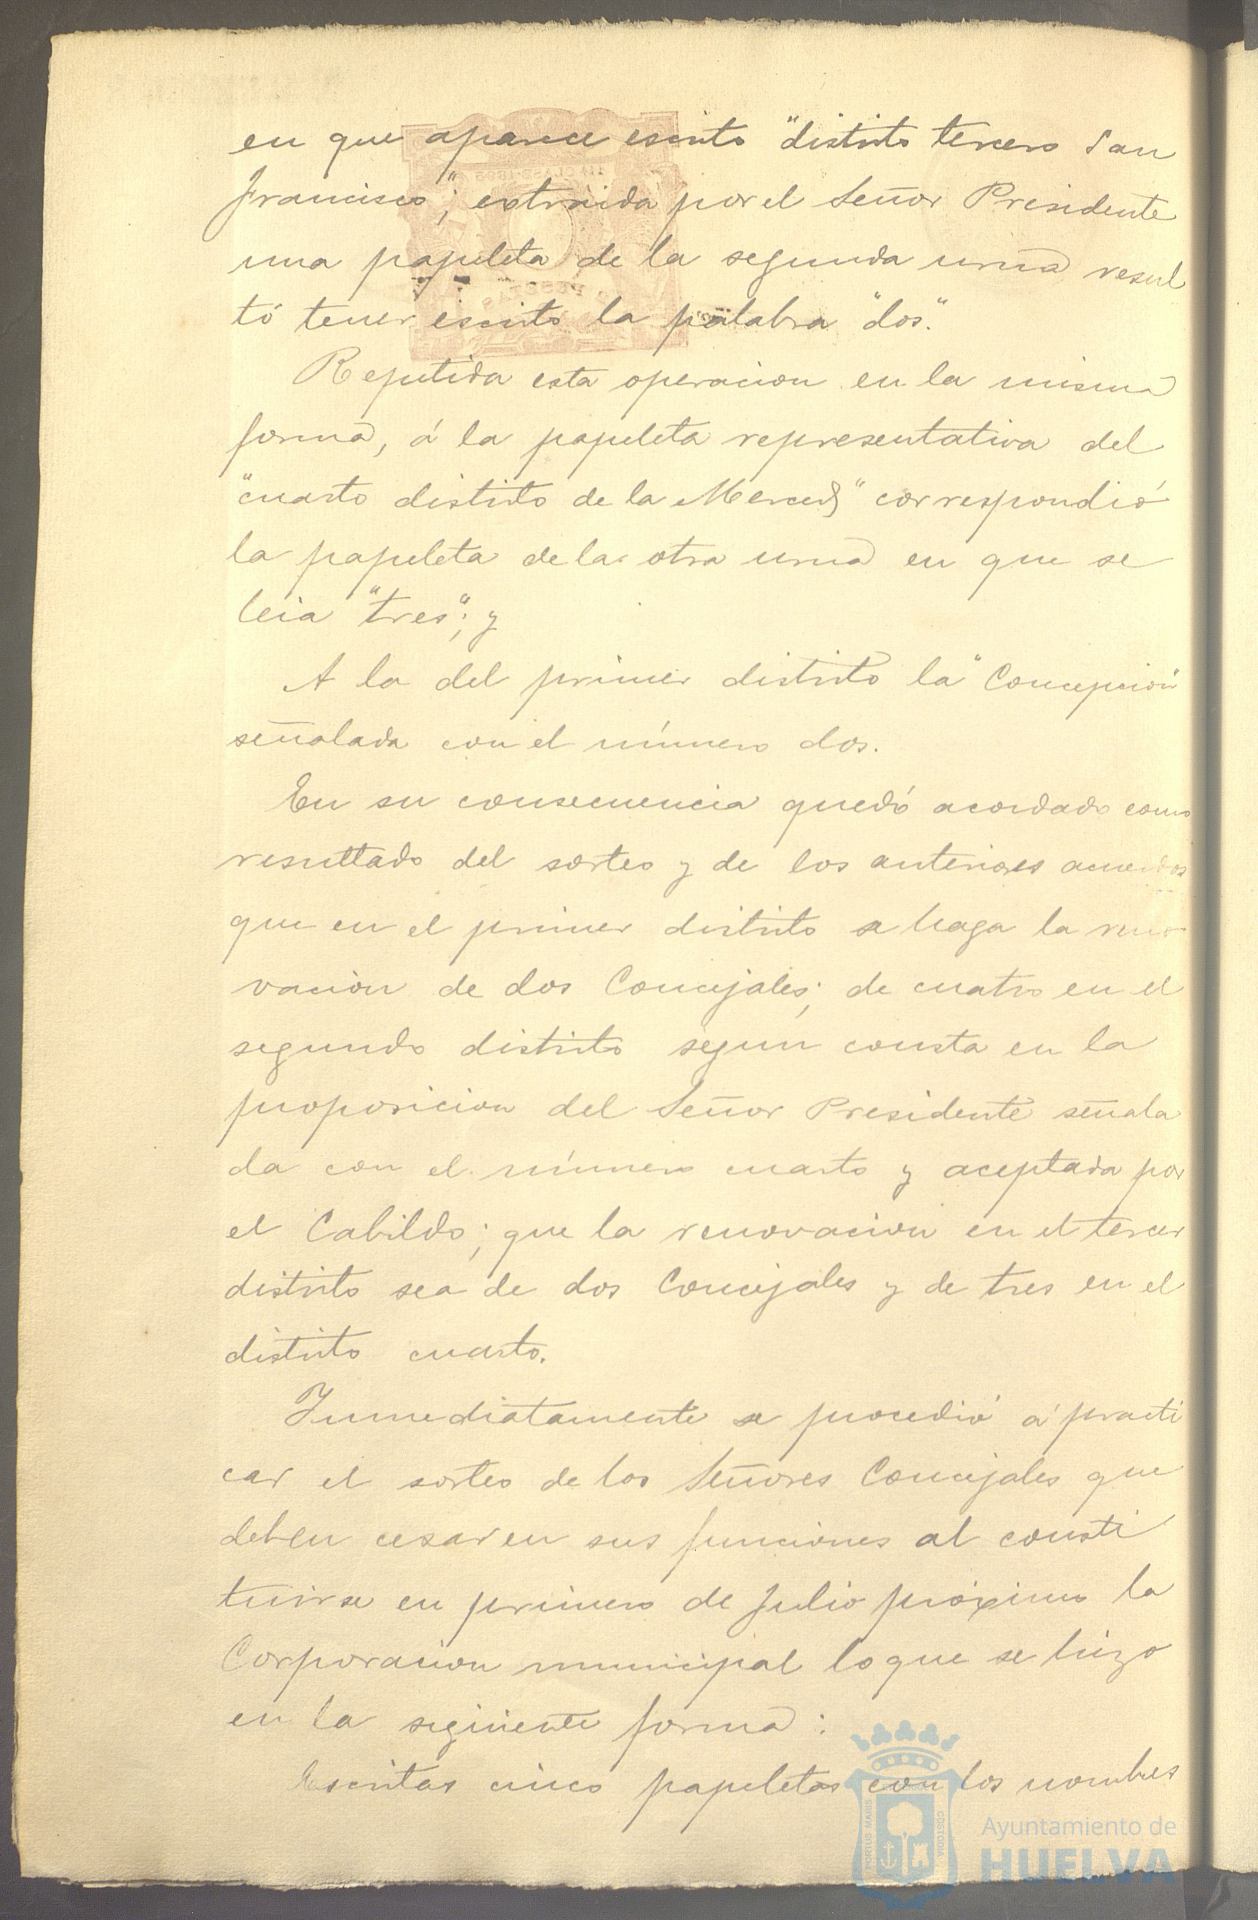 en que aparece escrito "distrito tercero San
Francisco"; extraida por el Señor Presidente
una papeleta de la segunda urna resul
tó tener escrito la palabra "dos".
Repetida esta operacion en la misma
forma, á la papeleta representativa del
"cuarto distrito de la Merced" correspondió
la papeleta de la otra urna en que se
leia "tres"; y
A la del primer distrito la "Concepción"
señalada con el número dos.
En su consecuencia quedó acordado como
resultado del sorteo y de los anteriores acuerdos
que en el primer distrito se haga la reno
vación de dos Concejales; de cuatro en el
segundo distrito segun consta en la
proposicion del Señor Presidente señala
da con el número cuarto y aceptada por
el Cabildo; que la renovacion en el tercer
distrito sea de dos Concejales y de tres en el
distrito cuarto.
Inmediatamente se procedió á practi
car el sorteo de los Señores Concejales que
deben cesar en sus funciones al consti
tuirse en primero de Julio próximo la
Corporacion municipal lo que se hizo
en la siguiente forma:
Escritas cinco papeletas con los nombres
Ayuntamiento de
HUELVA